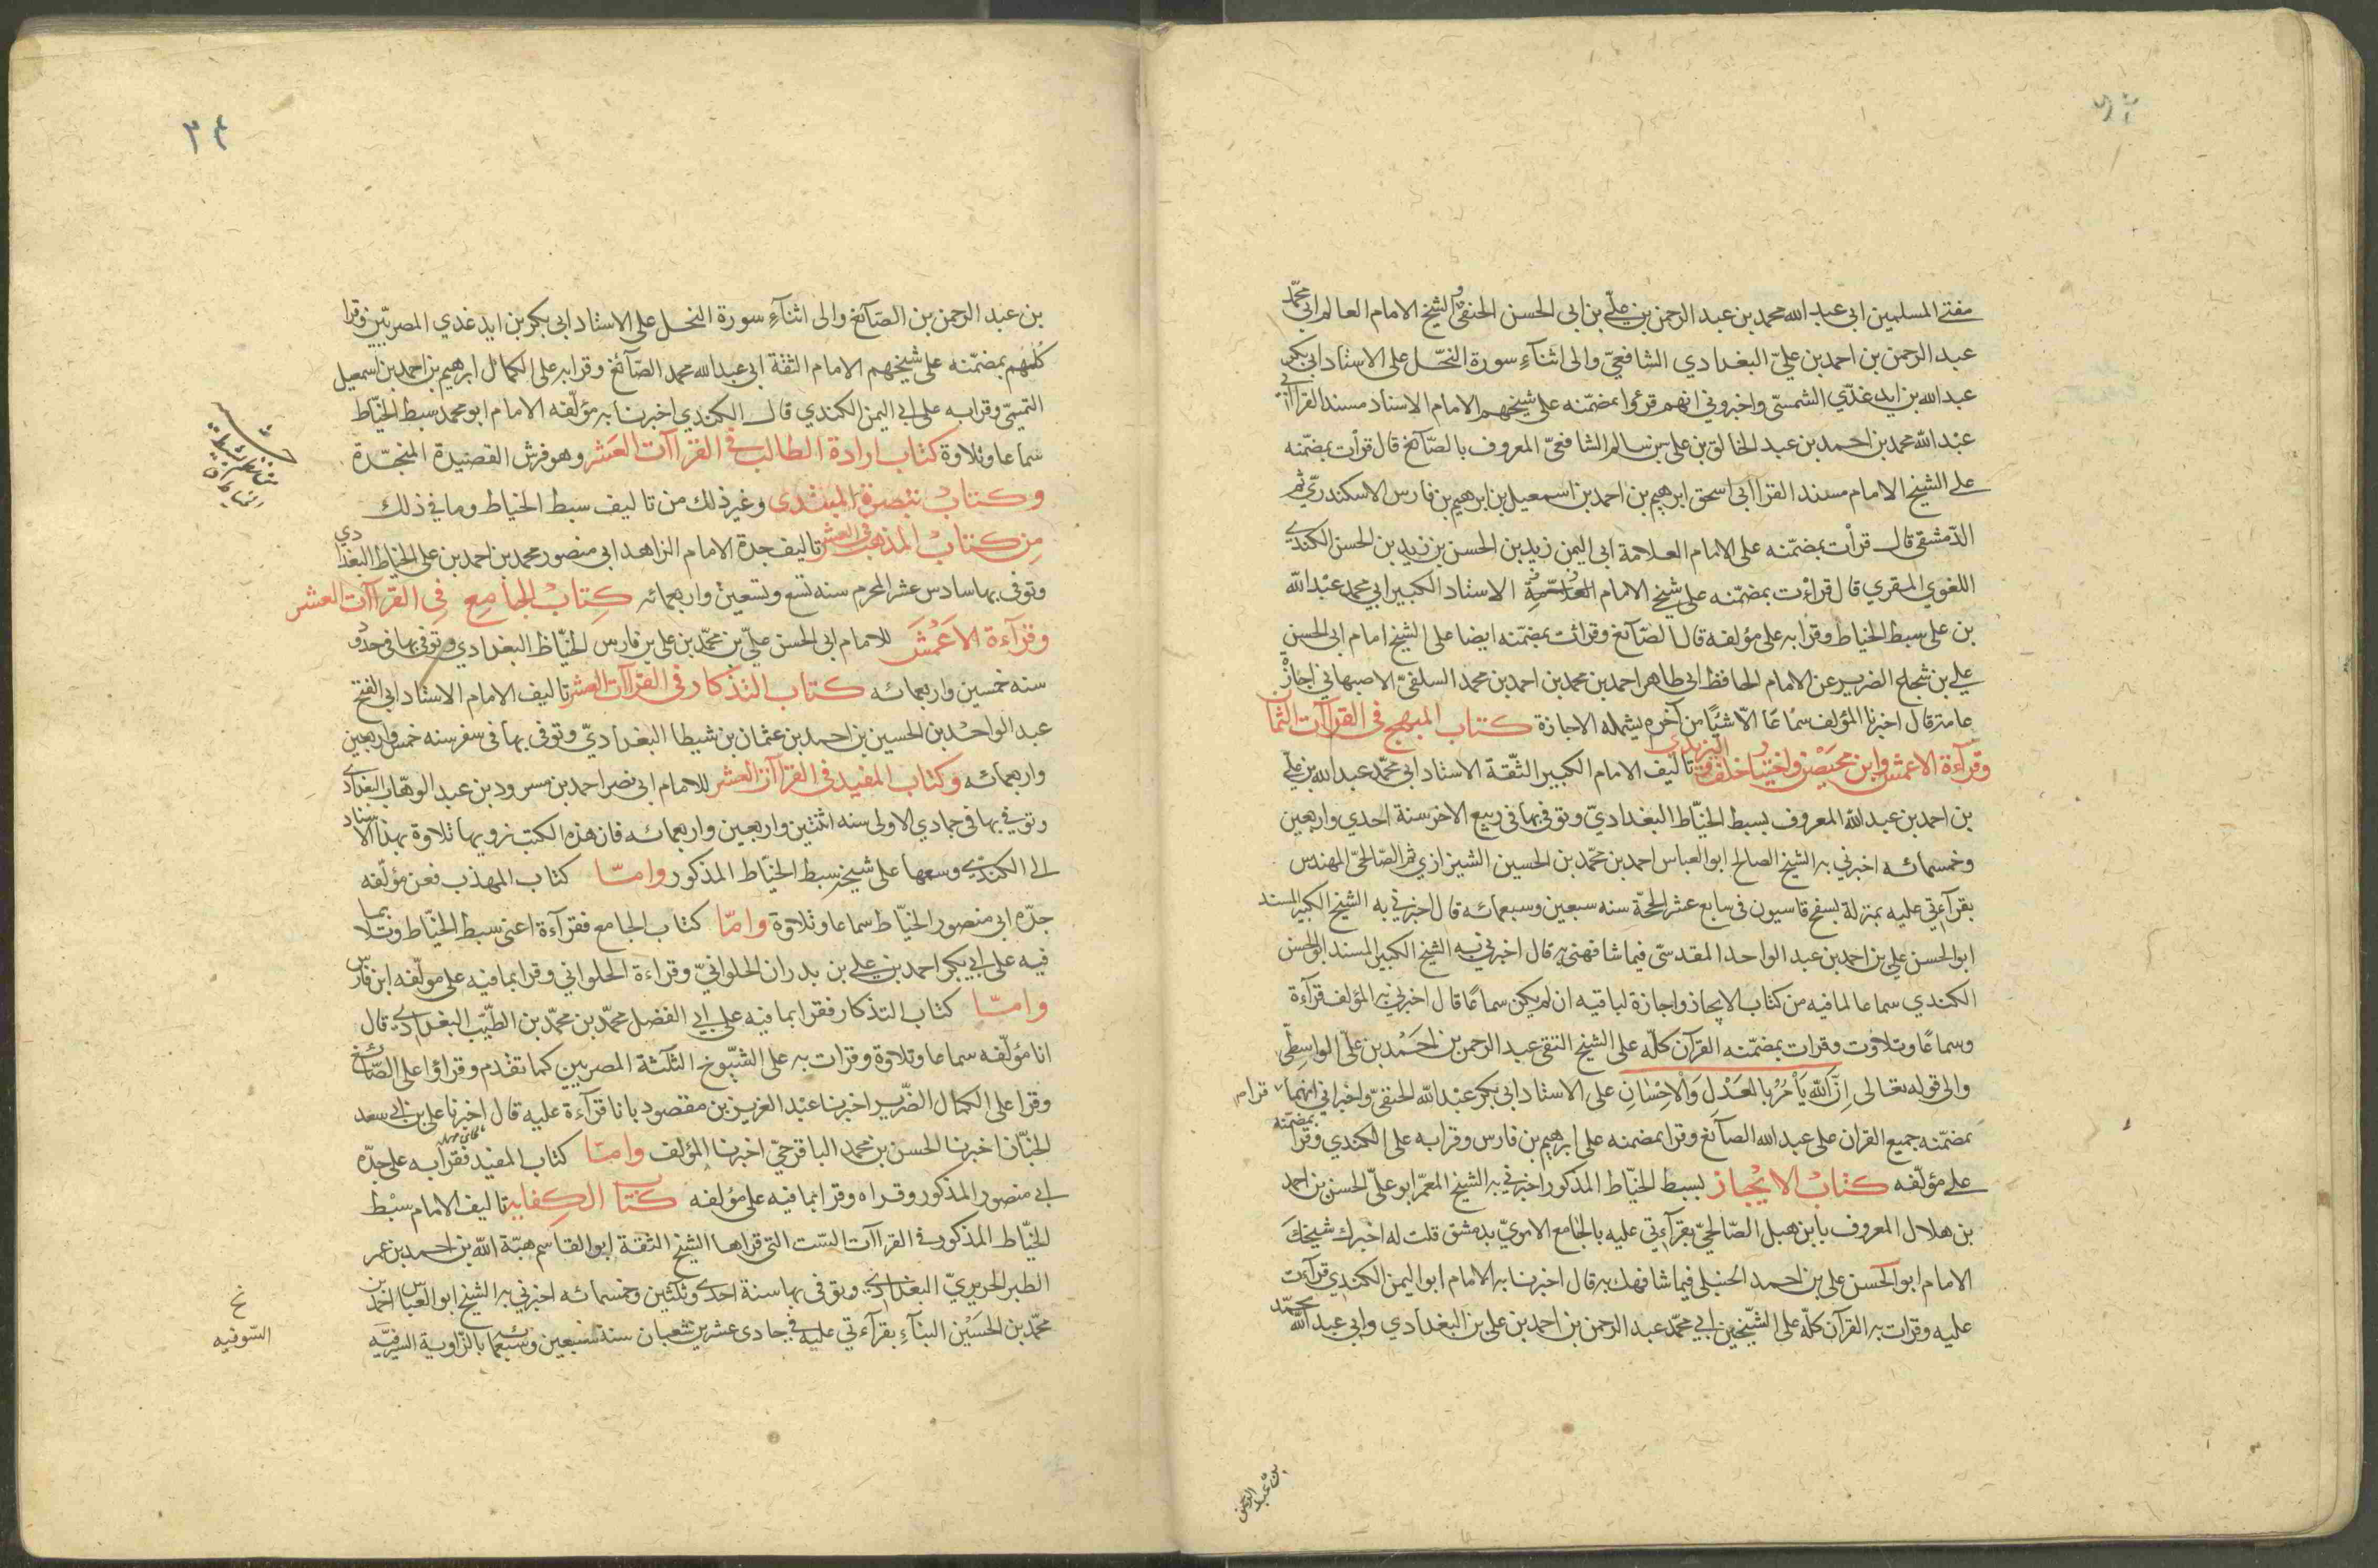 مفتي المسلمين ابي عبد الله محمد بن عبد الرحمن بن علي بن ابي الحسن الحنفي و الشيخ الامام العالم ابي محمد
عبد الرحمن بن احمد بن علي البغدادي الشافعي والى اثنآء سورة النحل على الاستاد ابي بكر
عبد الله بن ايدغدي الشمسي واخبروني انهم قرئوا بمضمنه على شيخهم الامام الاستاد مسند القراء ابي
عبد الله محمد بن احمد بن عبد الخالق بن علي بن سالم الشافعي المعروف بالصآئغ قال قرات بمضمنه
على الشيخ الامام مسند القرا ابي اسحق ابرهيم بن احمد بن اسمعيل بن ابرهيم بن فارس الاسكندري ثم
الدمشقي قال قرات بمضمنه على الامام العلامة ابي اليمن زيد بن الحسن بن زيد بن الحسن الكندي
اللغوي المقري قال قرأت بمضمنه على شيخ الامام الاستاد الكبير ابي محمد عبد الله
بن علي سبط الخياط وقرا به على مؤلفه قال الصآئغ وقرات بمضمنه ايضا على الشيخ امام ابي الحسن
علي بن شجاع الضرير عن الامام الحافظ ابي طاهر احمد بن محمد بن احمد بن محمد السلفي الاصبهاني اجازة
عامة قال اخبرنا المؤلف سماعا الا شيئا من آخره يشمله الاجازة كتاب المبهج في القراآت الثمان
وقرآءة الاعمش وابن محيصن واختيار خلف و اليزيدي تاليف الامام الكبير الثقة الاستاد ابي محمد عبد الله بن علي
بن احمد بن عبد الله المعروف بسبط الخياط البغدادي وتوفي بها في ربيع الاخر سنة احدي واربعين
وخمسمائه اخبرني به الشيخ الصالح ابو العباس احمد بن محمد بن الحسين الشيرازي ثم الصالحي المهندس
بقرآءتي عليه بمنزله بسفح قاسيون في سابع عشر الحجة سنه سبعين وسبعمائه قال اخبرني به الشيخ الكبير المسند
ابو الحسن علي بن احمد بن عبد الواحد المقدسي فيما شافهني به قال اخبرني به الشيخ الكبير المسند ابو الحسن
الكندي سماعا لما فيه من كتاب الايجاز واجازة لباقيه ان لم يكن سماعا قال اخبرني به المؤلف قرآءة
وسماعا وتلاوت وقرات بمضمنه القرآن كله على الشيخ التقي عبد الرحمن بن احمد بن علي الواسطي
والى قوله تعالى ان الله يأمر بالعدل والاحسان على الاستاد ابي بكر عبد الله الحنفي واخبراني انهما قرام
بمضمنه جميع القران على عبد الله الصآئغ وقرا بمضمنه على ابرهيم بن فارس وقرا به على الكندي وقرا بمضمنه
على مؤلفه كتاب الايجاز لسبط الخياط المذكور اخبرني به الشيخ المعمر ابو علي الحسن بن احمد
بن هلال المعروف بابن هبل الصالحي بقرآءتي عليه بالجامع الاموي بدمشق قلت له اخبرك شيخك
الامام ابو الحسن علي بن احمد الحنبلي فيما شافهك به قال اخبرنا به الامام ابو اليمن الكندي قرآءت
عليه وقرات به القرآن كله على الشيخين ابي محمد عبد الرحمن بن احمد بن علي بن البغدادي وابي عبد الله محمد
بن عبد الرحمن
٣٤
بن عبد الرحمن بن الصآئغ والى اثنآء سورة النحل على الاستاد ابي بكر بن ايدغدي المصريين وقرا
كلهم بمضمنه على شيخهم الامام الثقة ابي عبد الله محمد الصآئغ وقرا به على الكمال ابرهيم بن احمد بن اسمعيل
التميمي وقرا به على ابي اليمن الكندي قال الكندي اخبرنا به مؤلفه الامام ابو محمد سبط الخياط
سماعا وتلاوة كتاب ارادة الطالب في القراآت العشر وهو فرش القصيدة المنجدة
وكتاب تبصرة المبتدى وغير ذلك من تاليف سبط الخياط وما في ذلك
من كتاب المذهب في العشر تاليف جده الامام الزاهد ابي منصور محمد بن احمد بن علي الخياط البغدادي
وتوفي بها سادس عشر المحرم سنه تسع وتسعين واربعمائه كتاب الجامع في القراآت العشر
وقرآءة الاعمش للامام ابي الحسن علي بن محمد بن علي بن فارس الخياط البغدادي وتوفي بها في حدود
سنه خمسين واربعمائه كتاب التذكار في القراآت العشر تاليف الامام الاستاد ابي الفتح
عبد الواحد بن الحسين بن احمد بن عثمان بن شيطا البغدادي وتوفي بها في سفر سنه خمس واربعين
واربعمائه وكتاب المفيد في القراآت العشر للامام ابي نصر احمد بن مسرور بن عبد الوهاب البغدادي
وتوفي بها في جمادي الاولى سنه اثنتين واربعين واربعمائه فان هذه الكتب نرويها تلاوة بهذا الاسناد
الى الكندي وسمعها على شيخه سبط الخياط المذكور واما كتاب المهذب فعن مؤلفه
جده ابي منصور الخياط سماعا وتلاوة واما كتاب الجامع فقرآءة اعني سبط الخياط وتلا بما
فيه على ابي بكر احمد بن علي بن بدران الحلواني وقراءة الحلواني وقرا بما فيه على مؤلفه ابن فارس
واما كتاب التذكار فقرا بما فيه على ابي الفضل محمد بن محمد بن الطيب البغدادي قال
انا مؤلفه سماعا وتلاوة وقرات به على الشيوخ الثلثة المصريين كما تقدم وقراؤا على الصائغ
وقرا على الكمال الضرير اخبرنا عبد العزيز بن مقصود بانا قرآءة عليه قال اخبرنا علي بن ابي سعد
الخباز اخبرنا الحسن بن محمد الباقرحي اخبرنا المؤلف واما كتاب المفيد فقرا به على جده
ابي منصور المذكور وقراه وقرا بما فيه على مؤلفه كتاب الكفايه تاليف الامام سبط
الخياط المذكور في القراآت الست التي قراها الشيخ الثقة ابو القاسم هبة الله بن احمد بن عمر
الطبر الحريري البغدادي وتوفي بها سنة احدي وثلثين وخمسمائه اخبرني به الشيخ ابو العباس احمد بن
محمد بن الحسين البنآء بقرآءتي عليه في حادى عشرين شعبان سنة سبعين وسبعما ئه بالزاوية السيرفيه
نخ
السوفيه